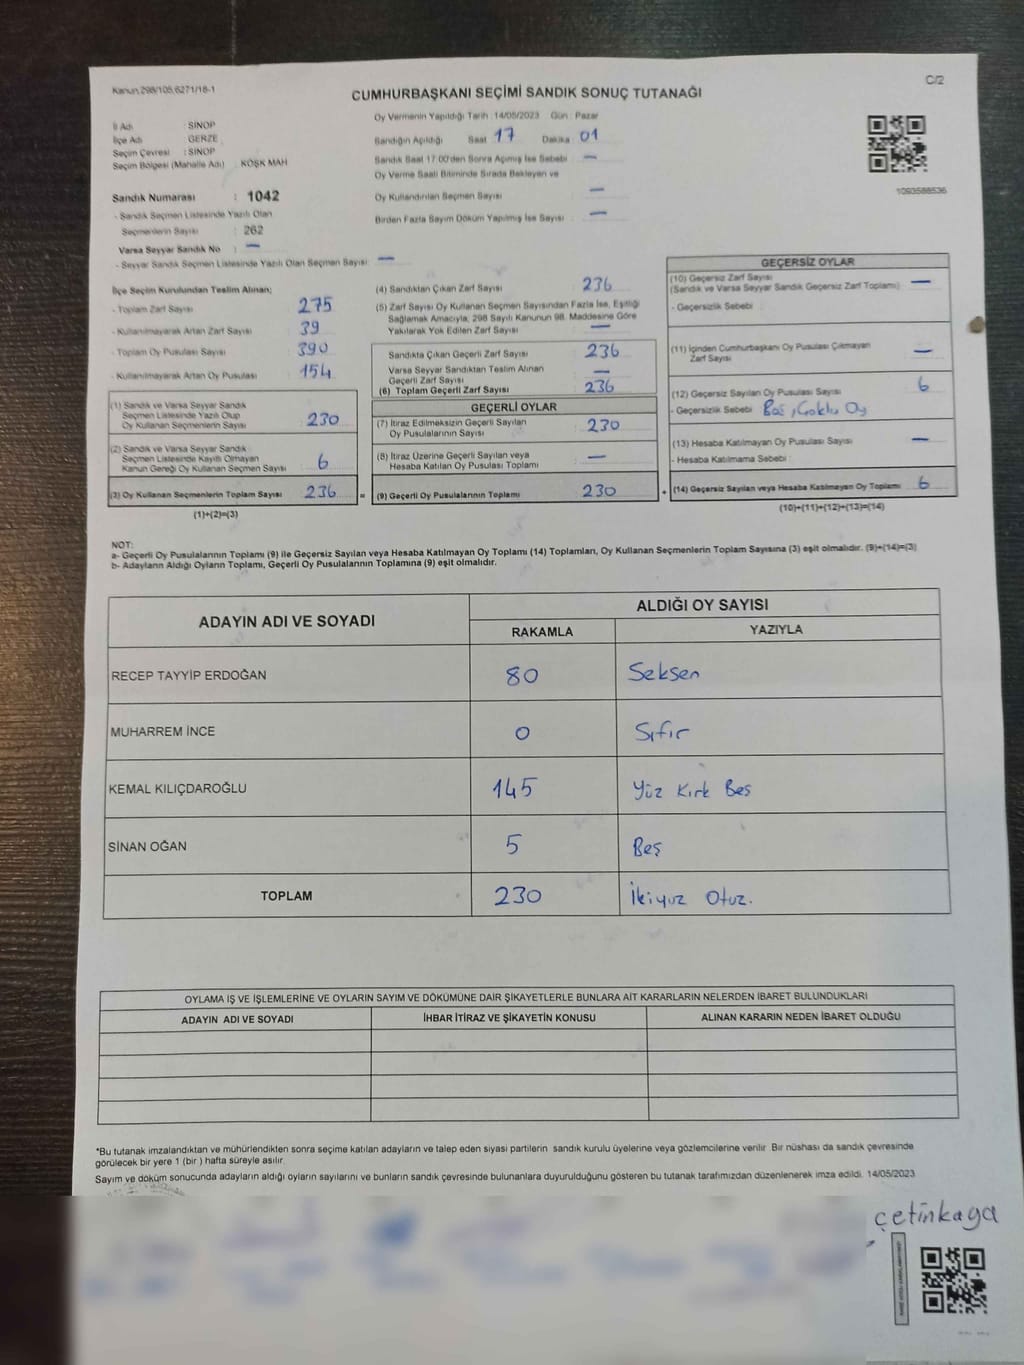 Kanun 298/105,6271/18-1
C/2
CUMHURBAŞKANI SEÇİMİ SANDIK SONUÇ TUTANAĞI
Oy Vermenin Yapıldığı Tarih : 14/05/2023 Gün : Pazar
İl Adı : SİNOP
İlçe Adı : GERZE
Seçim Çevresi : SİNOP
Seçim Bölgesi (Mahalle Adı) : KÖŞK MAH
Sandık Numarası : 1042
- Sandık Seçmen Listesinde Yazılı Olan
Seçmenlerin Sayısı : 262
Varsa Seyyar Sandık No : —
- Seyyar Sandık Seçmen Listesinde Yazılı Olan Seçmen Sayısı : —
Sandığın Açıldığı Saat 17 Dakika 01
Sandık Saat 17.00'den Sonra Açılmış İse Sebebi : —
Oy Verme Saati Bitiminde Sırada Bekleyen ve
Oy Kullandırılan Seçmen Sayısı : —
Birden Fazla Sayım Döküm Yapılmış İse Sayısı : —
1093588536
İlçe Seçim Kurulundan Teslim Alınan;
- Toplam Zarf Sayısı : 275
- Kullanılmayarak Artan Zarf Sayısı : 39
- Toplam Oy Pusulası Sayısı : 390
- Kullanılmayarak Artan Oy Pusulası : 154
(1) Sandık ve Varsa Seyyar Sandık
Seçmen Listesinde Yazılı Olup
Oy Kullanan Seçmenlerin Sayısı : 230
(2) Sandık ve Varsa Seyyar Sandık
Seçmen Listesinde Kayıtlı Olmayan
Kanun Gereği Oy Kullanan Seçmen Sayısı : 6
(3) Oy Kullanan Seçmenlerin Toplam Sayısı : 236
(1)+(2)=(3)
(4) Sandıktan Çıkan Zarf Sayısı : 236
(5) Zarf Sayısı Oy Kullanan Seçmen Sayısından Fazla İse, Eşitliği
Sağlamak Amacıyla, 298 Sayılı Kanunun 98. Maddesine Göre
Yakılarak Yok Edilen Zarf Sayısı : —
Sandıkta Çıkan Geçerli Zarf Sayısı : 236
Varsa Seyyar Sandıktan Teslim Alınan
Geçerli Zarf Sayısı : —
(6) Toplam Geçerli Zarf Sayısı : 236
GEÇERLİ OYLAR
(7) İtiraz Edilmeksizin Geçerli Sayılan
Oy Pusulalarının Sayısı : 230
(8) İtiraz Üzerine Geçerli Sayılan veya
Hesaba Katılan Oy Pusulası Toplamı : —
= (9) Geçerli Oy Pusulalarının Toplamı : 230
GEÇERSİZ OYLAR
(10) Geçersiz Zarf Sayısı
(Sandık ve Varsa Seyyar Sandık Geçersiz Zarf Toplamı) : —
- Geçersizlik Sebebi :
(11) İçinden Cumhurbaşkanı Oy Pusulası Çıkmayan
Zarf Sayısı : —
(12) Geçersiz Sayılan Oy Pusulası Sayısı : 6
- Geçersizlik Sebebi : Boş, Çoklu Oy
(13) Hesaba Katılmayan Oy Pusulası Sayısı : —
- Hesaba Katılmama Sebebi :
+ (14) Geçersiz Sayılan veya Hesaba Katılmayan Oy Toplamı : 6
(10)+(11)+(12)+(13)=(14)
NOT:
a- Geçerli Oy Pusulalarının Toplamı (9) ile Geçersiz Sayılan veya Hesaba Katılmayan Oy Toplamı (14) Toplamları, Oy Kullanan Seçmenlerin Toplam Sayısına (3) eşit olmalıdır. (9)+(14)=(3)
b- Adayların Aldığı Oyların Toplamı, Geçerli Oy Pusulalarının Toplamına (9) eşit olmalıdır.
ADAYIN ADI VE SOYADI
ALDIĞI OY SAYISI
RAKAMLA YAZIYLA
RECEP TAYYİP ERDOĞAN 80 Seksen
MUHARREM İNCE 0 Sıfır
KEMAL KILIÇDAROĞLU 145 Yüz Kırk Beş
SİNAN OĞAN 5 Beş
TOPLAM 230 İkiyüz Otuz.
OYLAMA İŞ VE İŞLEMLERİNE VE OYLARIN SAYIM VE DÖKÜMÜNE DAİR ŞİKAYETLERLE BUNLARA AİT KARARLARIN NELERDEN İBARET BULUNDUKLARI
ADAYIN ADI VE SOYADI İHBAR İTİRAZ VE ŞİKAYETİN KONUSU ALINAN KARARIN NEDEN İBARET OLDUĞU
*Bu tutanak imzalandıktan ve mühürlendikten sonra seçime katılan adayların ve talep eden siyasi partilerin sandık kurulu üyelerine veya gözlemcilerine verilir. Bir nüshası da sandık çevresinde
görülecek bir yere 1 (bir ) hafta süreyle asılır.
Sayım ve döküm sonucunda adayların aldığı oyların sayılarını ve bunların sandık çevresinde bulunanlara duyurulduğunu gösteren bu tutanak tarafımızdan düzenlenerek imza edildi. 14/05/2023
Çetinkaya